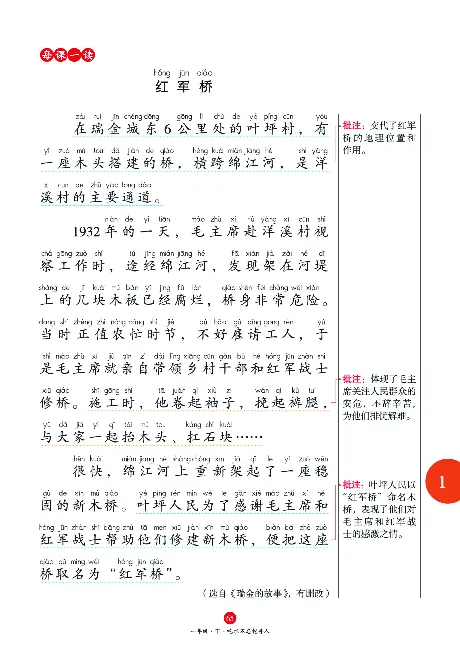 每课一读
hóng jūn qiáo
红军桥
zài ruì jīn chéng dōng gōng lǐ chù de yè píng cūn yǒu
在瑞金城东6公里处的叶坪村，有
yí zuò mù tou dā jiàn de qiáo héng kuà mián jiāng hé shì yáng
一座木头搭建的桥，横跨绵江河，是洋
xī cūn de zhǔ yào tōng dào
溪村的主要通道。
nián de yì tiān máo zhǔ xí fù yáng xī cūn shì
1932年的一天，毛主席赴洋溪村视
chá gōng zuò shí tú jīng mián jiāng hé fā xiàn jià zài hé dī
察工作时，途经绵江河，发现架在河堤
shàng de jǐ kuài mù bǎn yǐ jīng fǔ làn qiáo shēn fēi cháng wēi xiǎn
上的几块木板已经腐烂，桥身非常危险。
dāng shí zhèng zhí nóng máng shí jié bù hǎo gù qǐng gōng rén yú
当时正值农忙时节，不好雇请工人，于
shì máo zhǔ xí jiù qīn zì dài lǐng xiāng cūn gàn bù hé hóng jūn zhàn shì
是毛主席就亲自带领乡村干部和红军战士
xiū qiáo shī gōng shí tā juǎn qǐ xiù zi wǎn qǐ kù tuǐ
修桥。施工时，他卷起袖子，挽起裤腿，
yǔ dà jiā yì qǐ tái mù tou káng shí kuài
与大家一起抬木头、扛石块……
hěn kuài mián jiāng hé shàng chóng xīn jià qǐ le yí zuò wěn
很快，绵江河上重新架起了一座稳
gù de xīn mù qiáo yè píng rén mín wèi le gǎn xiè máo zhǔ xí hé
固的新木桥。叶坪人民为了感谢毛主席和
hóng jūn zhàn shì bāng zhù tā men xiū jiàn xīn mù qiáo biàn bǎ zhè zuò
红军战士帮助他们修建新木桥，便把这座
qiáo qǔ míng wéi hóng jūn qiáo
桥取名为“红军桥”。
（选自《瑞金的故事》，有删改）
批注：交代了红军
桥的地理位置和
作用。
批注：体现了毛主
席关注人民群众的
安危，不辞辛苦，
为他们排忧解难。
批注：叶坪人民以
“红军桥”命名木
桥，表现了他们对
毛主席和红军战
士的感激之情。
1